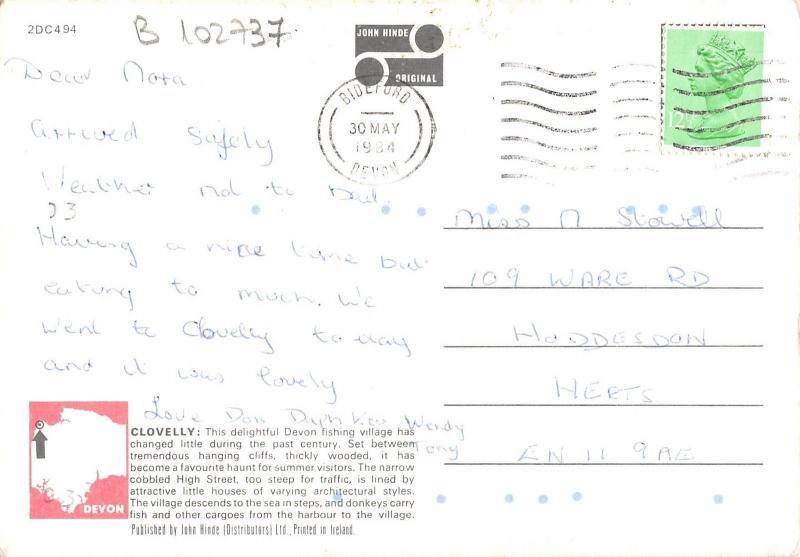 2DC494
B 102737
JOHN HINDE
ORIGINAL
BIDEFORD
30 MAY
1984
DEVON
12
Dear Nora
arrived safely
Weather not to bad.
Having a nice time but
eating to much. We
went to Clovelly to day
and it was lovely
Love Don Daph Kev Wendy
Tony
Miss N Stowell
109 WARE RD
HODDESDON
HERTS
EN 11 9AE
DEVON
CLOVELLY: This delightful Devon fishing village has
changed little during the past century. Set between
tremendous hanging cliffs, thickly wooded, it has
become a favourite haunt for summer visitors. The narrow
cobbled High Street, too steep for traffic, is lined by
attractive little houses of varying architectural styles.
The village descends to the sea in steps, and donkeys carry
fish and other cargoes from the harbour to the village.
Published by John Hinde (Distributors) Ltd., Printed in Ireland.